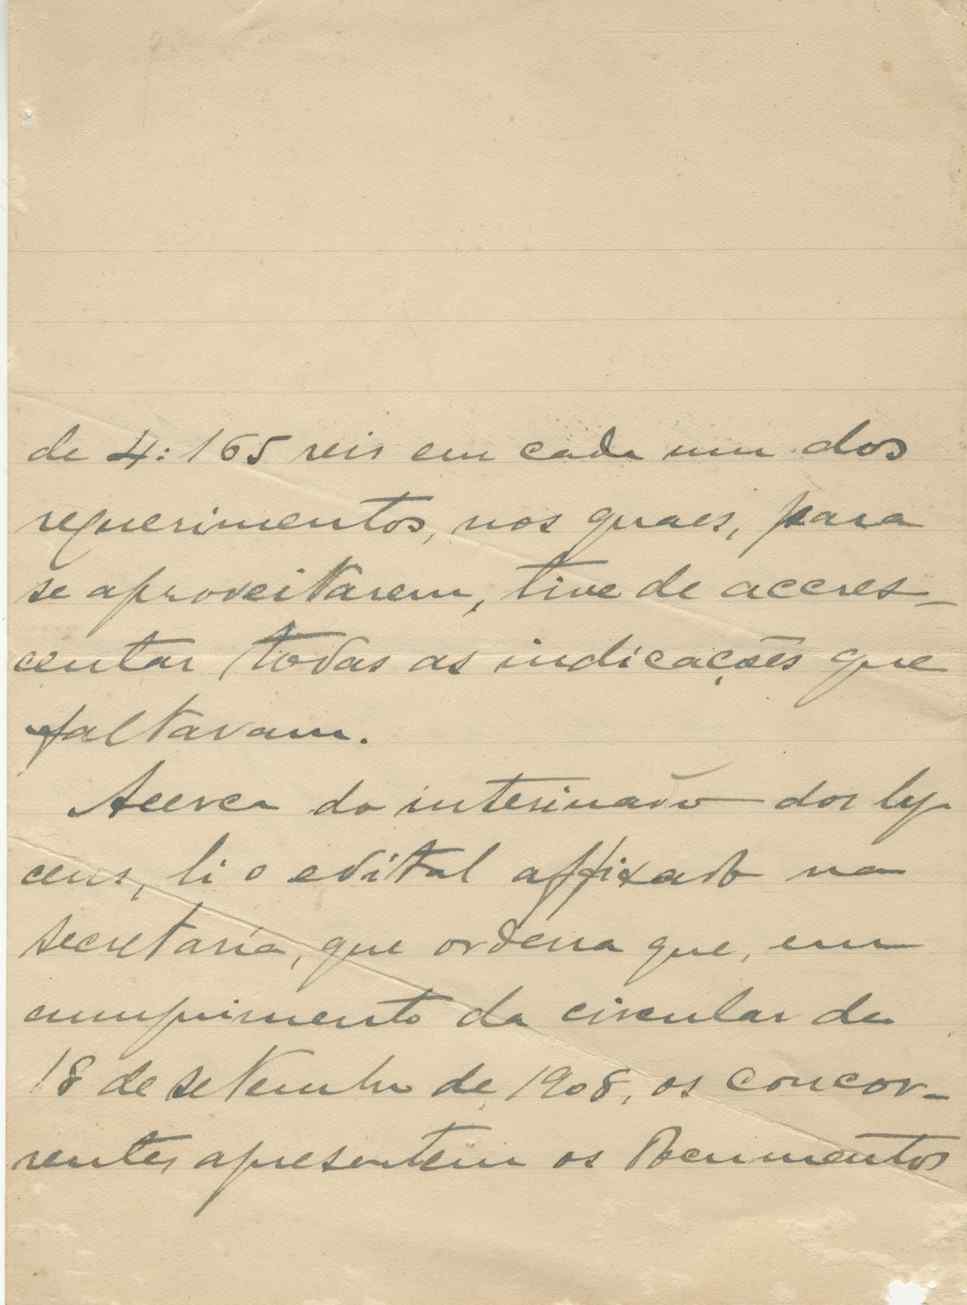 de 4:165 reis em cada um dos
requerimentos, nos quaes, para
se aproveitarem, tive de accres-
centar todas as indicações que
faltavam.
Acerca do interinado dos ly-
ceus, li o edital affixado na
secretaria, que ordena que, em
cumprimento da circular de
18 de setembro de 1908, os concor-
rentes apresentem os documentos